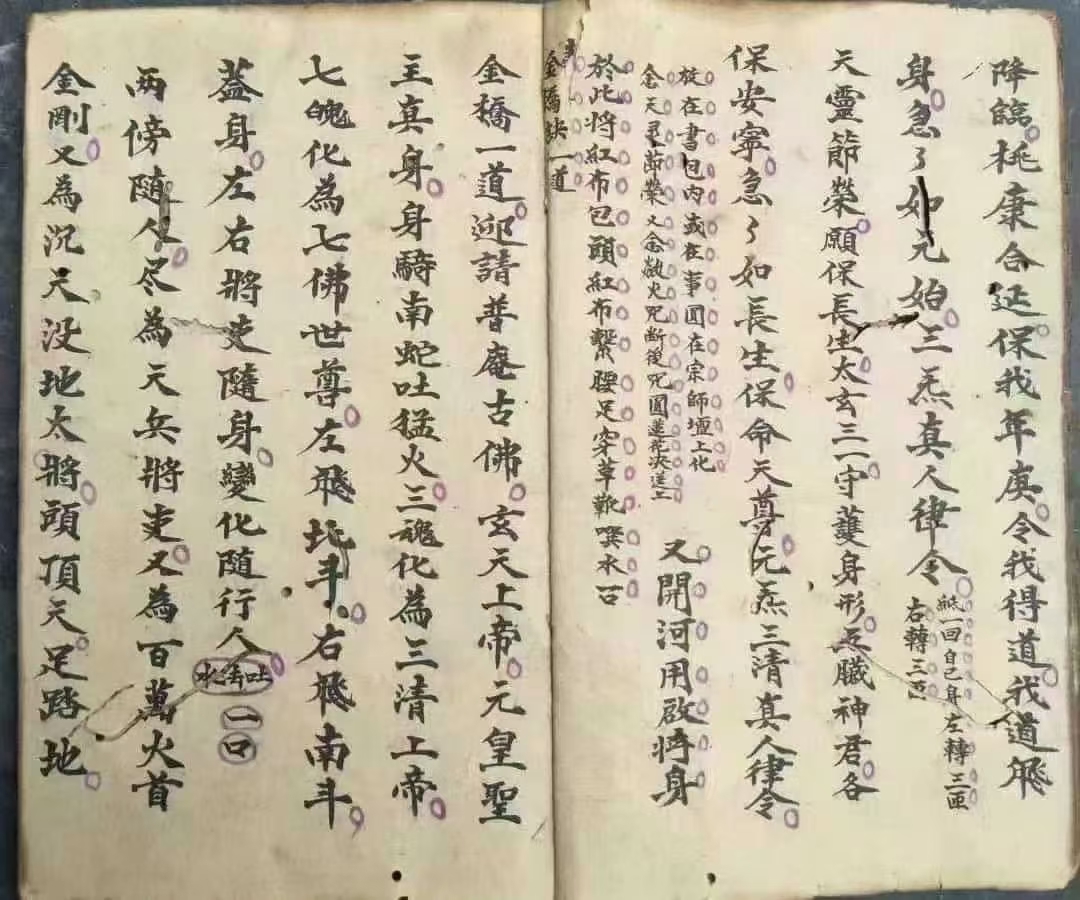 降臨桃康合延保我年庚令我得道我道飛
身急々如元始三炁真人律令
紙一回自己年左轉三匝
右轉三匝
天靈節榮願保長生太玄三一守護身形五臟神君各
保安寧急々如長生保命天尊元炁三清真人律令
在書包內或在事圓在宗師壇上化
念天灵節榮又念救火咒断後咒圓蓮花決送上
於此將紅布包頭紅布繫腰足穿草靴噀水一口
又開河用啟將身
金橋訣一道
金橋一道迎請普庵古佛玄天上帝元皇聖
主真身身騎南蛇吐猛火三魂化為三清上帝
七魄化為七佛世尊左飛北斗右飛南斗
蓋身左右將吏隨身變化随行人
吐毒水
一口
兩傍隨人尽為天兵將吏又為百萬火首
金剛又為沉天没地太將頭頂天足踏地